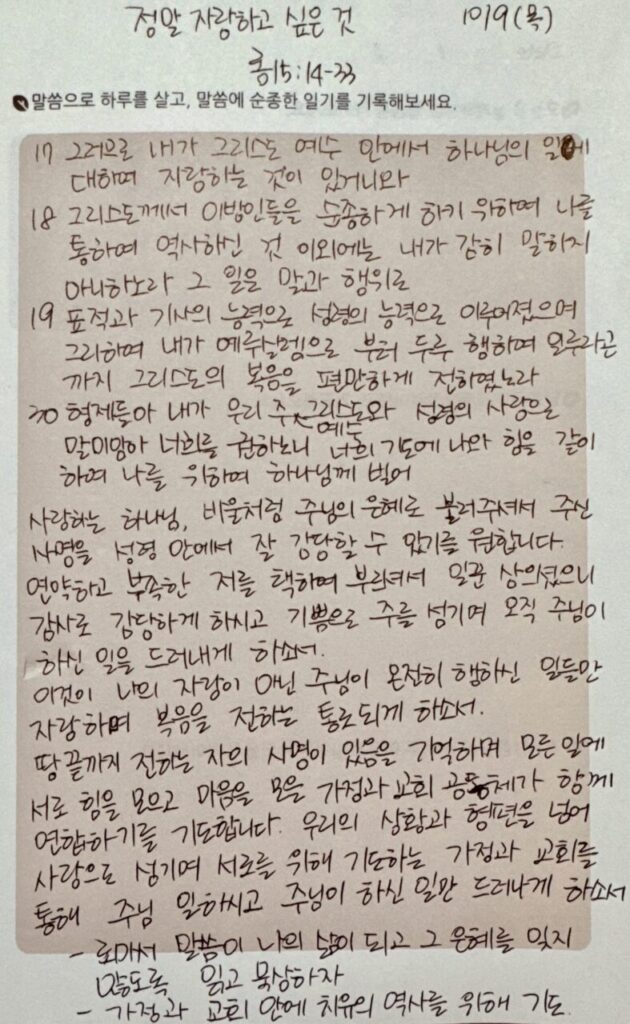 정말 자랑하고 싶은 것 10/9(목)
롬15:14-33
말씀으로 하루를 살고, 말씀에 순종한 일기를 기록해보세요.
17 그러므로 내가 그리스도 예수 안에서 하나님의 일에
대하여 자랑하는 것이 있거니와
18 그리스도께서 이방인들을 순종하게 하기 위하여 나를
통하여 역사하신 것 이외에는 내가 감히 말하지
아니하노라 그 일은 말과 행위로
19 표적과 기사의 능력으로 성령의 능력으로 이루어졌으며
그리하여 내가 예루살렘으로 부터 두루 행하여 일루리곤
까지 그리스도의 복음을 편만하게 전하였노라
30 형제들아 내가 우리 주 예수 그리스도와 성령의 사랑으로
말미암아 너희를 권하노니 너희 기도에 나와 힘을 같이
하여 나를 위하여 하나님께 빌어
사랑하는 하나님, 바울처럼 주님의 은혜로 불러주셔서 주신
사명을 성령 안에서 잘 감당할 수 있기를 원합니다.
연약하고 부족한 저를 택하여 부르셔서 일꾼 삼으셨으니
감사로 감당하게 하시고 기쁨으로 주를 섬기며 오직 주님이
하신 일을 드러내게 하소서.
이것이 나의 자랑이 아닌 주님이 온전히 행하신 일들만
자랑하며 복음을 전하는 통로되게 하소서.
땅끝까지 전하는 자의 사명이 있음을 기억하며 모든일에
서로 힘을 모으고 마음을 모을 가정과 교회 공동체가 함께
연합하기를 기도합니다. 우리의 상황과 형편을 넘어
사랑으로 섬기며 서로를 위해 기도하는 가정과 교회를
통해 주님 일하시고 주님이 하신 일만 드러나게 하소서
- 로마서 말씀이 나의 삶이 되고 그 은혜를 잊지
않도록 읽고 묵상하자
- 가정과 교회 안에 치유의 역사를 위해 기도.